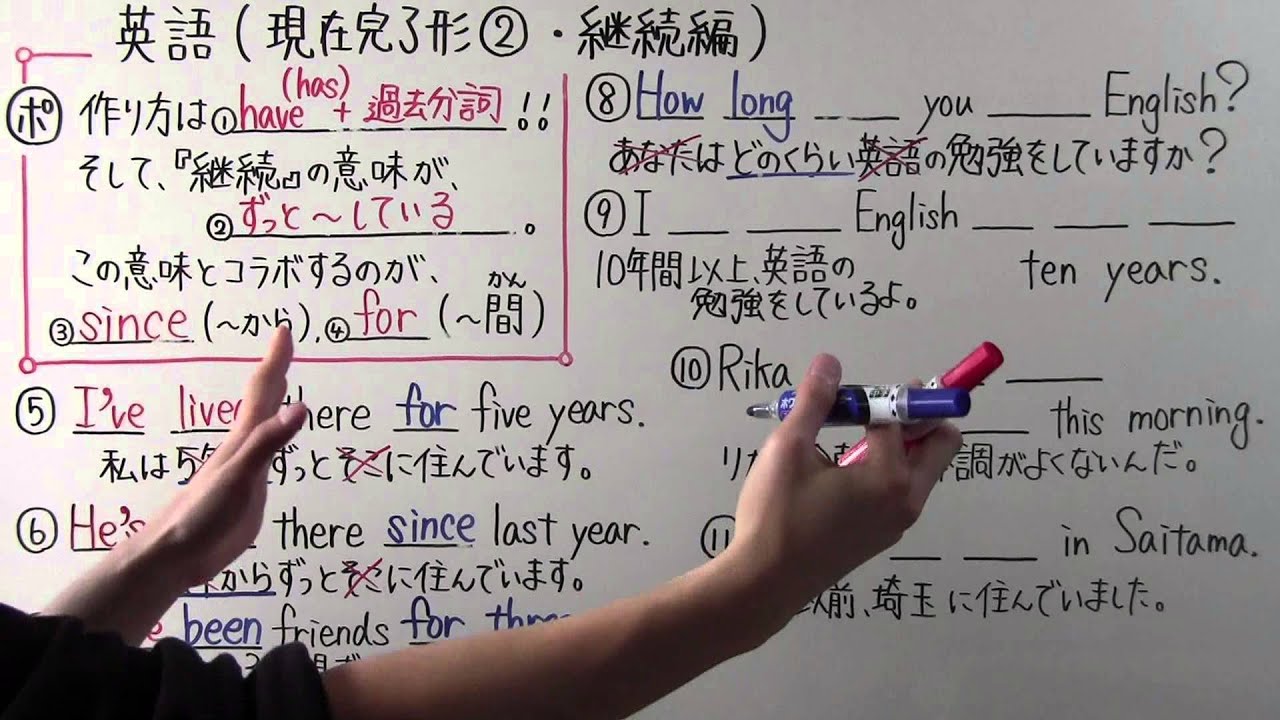 英語(現在完了形②・継続編)
ポ 作り方は①have(has)+過去分詞!!
そして、『継続』の意味が、
②ずっと〜している。
この意味とコラボするのが、
③since(〜から),④for(〜間)
かん
⑤ I've lived there for five years.
私は5年間ずっとそこに住んでいます。
⑥ He's there since last year.
からずっとそこに住んでいます。
been friends for three
⑧ How long ____ you ____ English?
あなたはどのくらい英語の勉強をしていますか?
⑨ I ____ ____ English ____ ____ ____
ten years.
10年間以上、英語の
勉強をしているよ。
⑩ Rika ____
____ this morning.
調がよくないんだ。
⑪ ____ ____ in Saitama.
以前、埼玉に住んでいました。